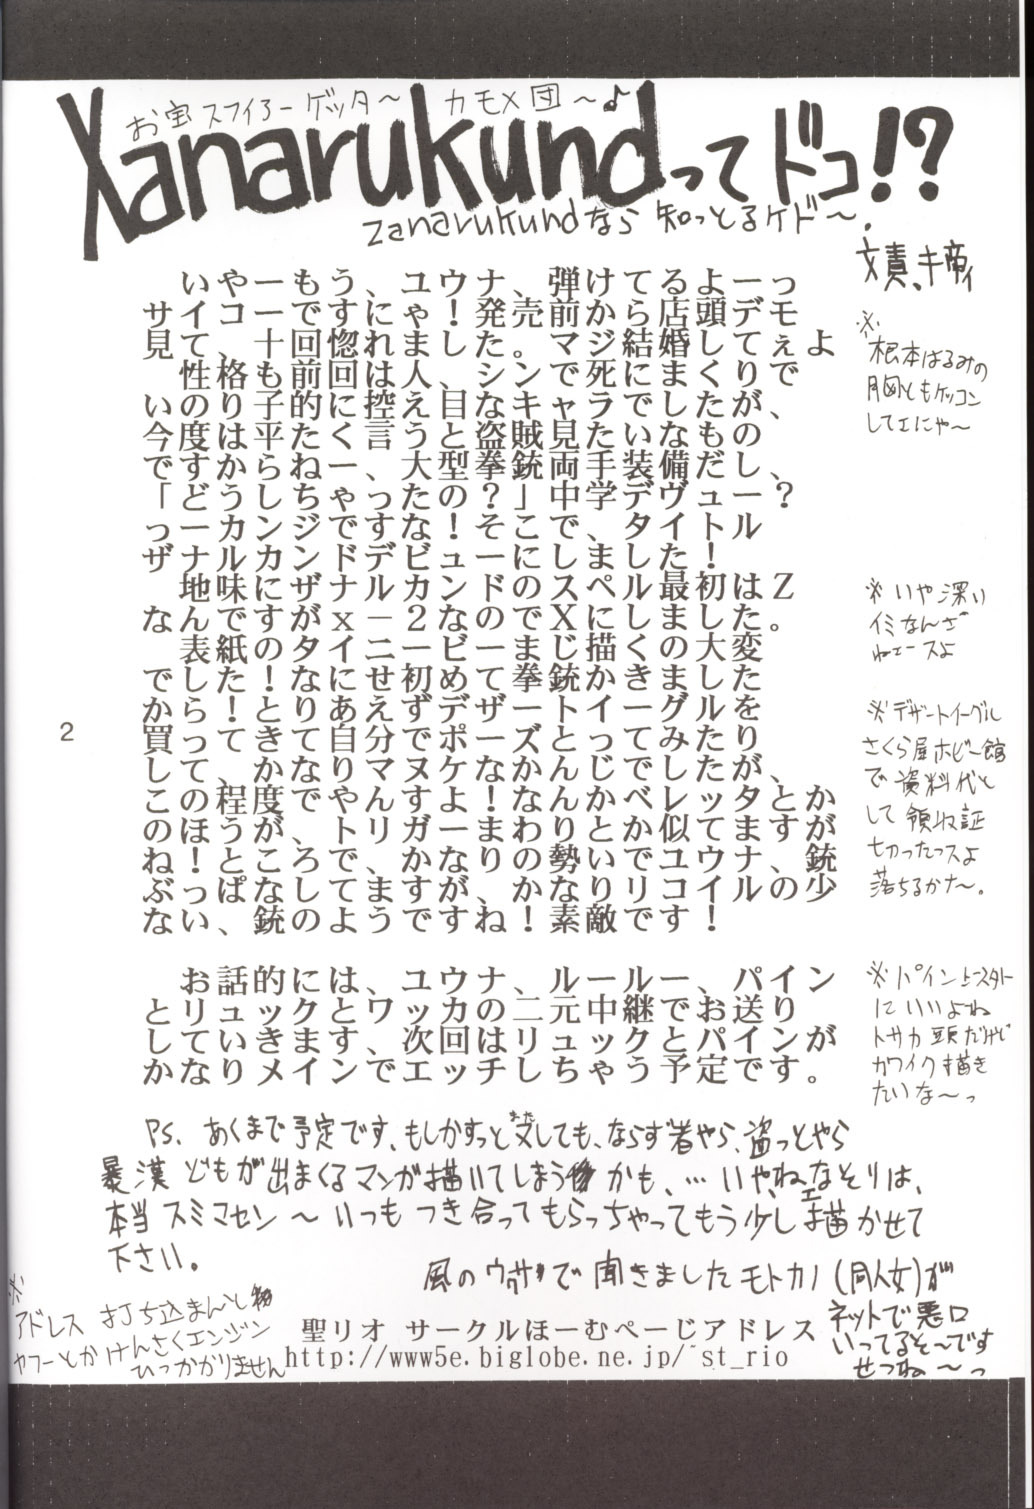 お宝スフィるーゲッタ〜　カモメ団〜♪
Xanarukundってドコ!?
Zanarukundなら知っとるケド〜.
文責、キ帝ィ
いや一もう、ユウナ、弾けてるよーっ
サイコ一ですにゃ！発売前から店頭デモ
見て、十回惚れました。マジ結婚してぇよ
性格も前回は人、シンで死にまくりで
いのり子的に控え目なキャラでしたが、
今度は平たく言うと盗賊見たいなもの
ですからねー、大型拳銃両手装備だし、
「どうしちゃったの？」中学デヴュー？
っーカンジですな！そこで、タイトル
ザナルカンドデビューにしました！
地味にザナルカンドのスペル最初はＺ
なんですがｘ－２なのでＸにしました。
表紙のタイニービーまじ描くの大変
でした！なにせ初めて拳銃かきました
から！とりあえずデザートイーグルを
買ってきて自分でポーズとってみたり
して、かなりマヌケなかんじでしたが、
この程度でやんすよ！なんかべレッタとか
のほうが、トリガーまわりとか似てますが
ね！ところで、かなりの勢いでユウナ、銃
ぶっぱなしてますが、かなりリコイルの少
ない、銃のようですね！素敵です！
お話的には、ユウナ、ルールー、パイン
とリュックと、ワッカの二元中継でお送り
していきます、次回はリュックとパインが
かなりメインでエッチしちゃう予定です。
※根本はるみの
胸ともケッコン
してェにゃ〜
※いや深い
イミなんざ
ねェースよ
※デザートイーグル
さくら屋ホビー館
で資料代と
して領収証
切ったっスよ
落ちるかナ〜。
※パイン上スタト
にいいよね
トサカ頭だけど
カワイク描き
たいな〜っ
PS、あくまで予定です、もしかすっと又しても、ならず者やら、盗っとやら
暴漢どもが出まくるマンガ描いてしまうかも、…いやねェなそりは、
本当スミマセン〜いつもつき合ってもらっちゃってもう少し描かせて
下さい。
風のウワサで聞きましたモトカノ(同人女)が
ネットで悪口
いってるそ〜です
せつね〜っ
※アドレス打ち込まんと
ヤフーとかけんさくエンジン
ひっかかりません
聖リオ　サークルほーむぺーじアドレス
http://www5e.biglobe.ne.jp/~st_rio
2